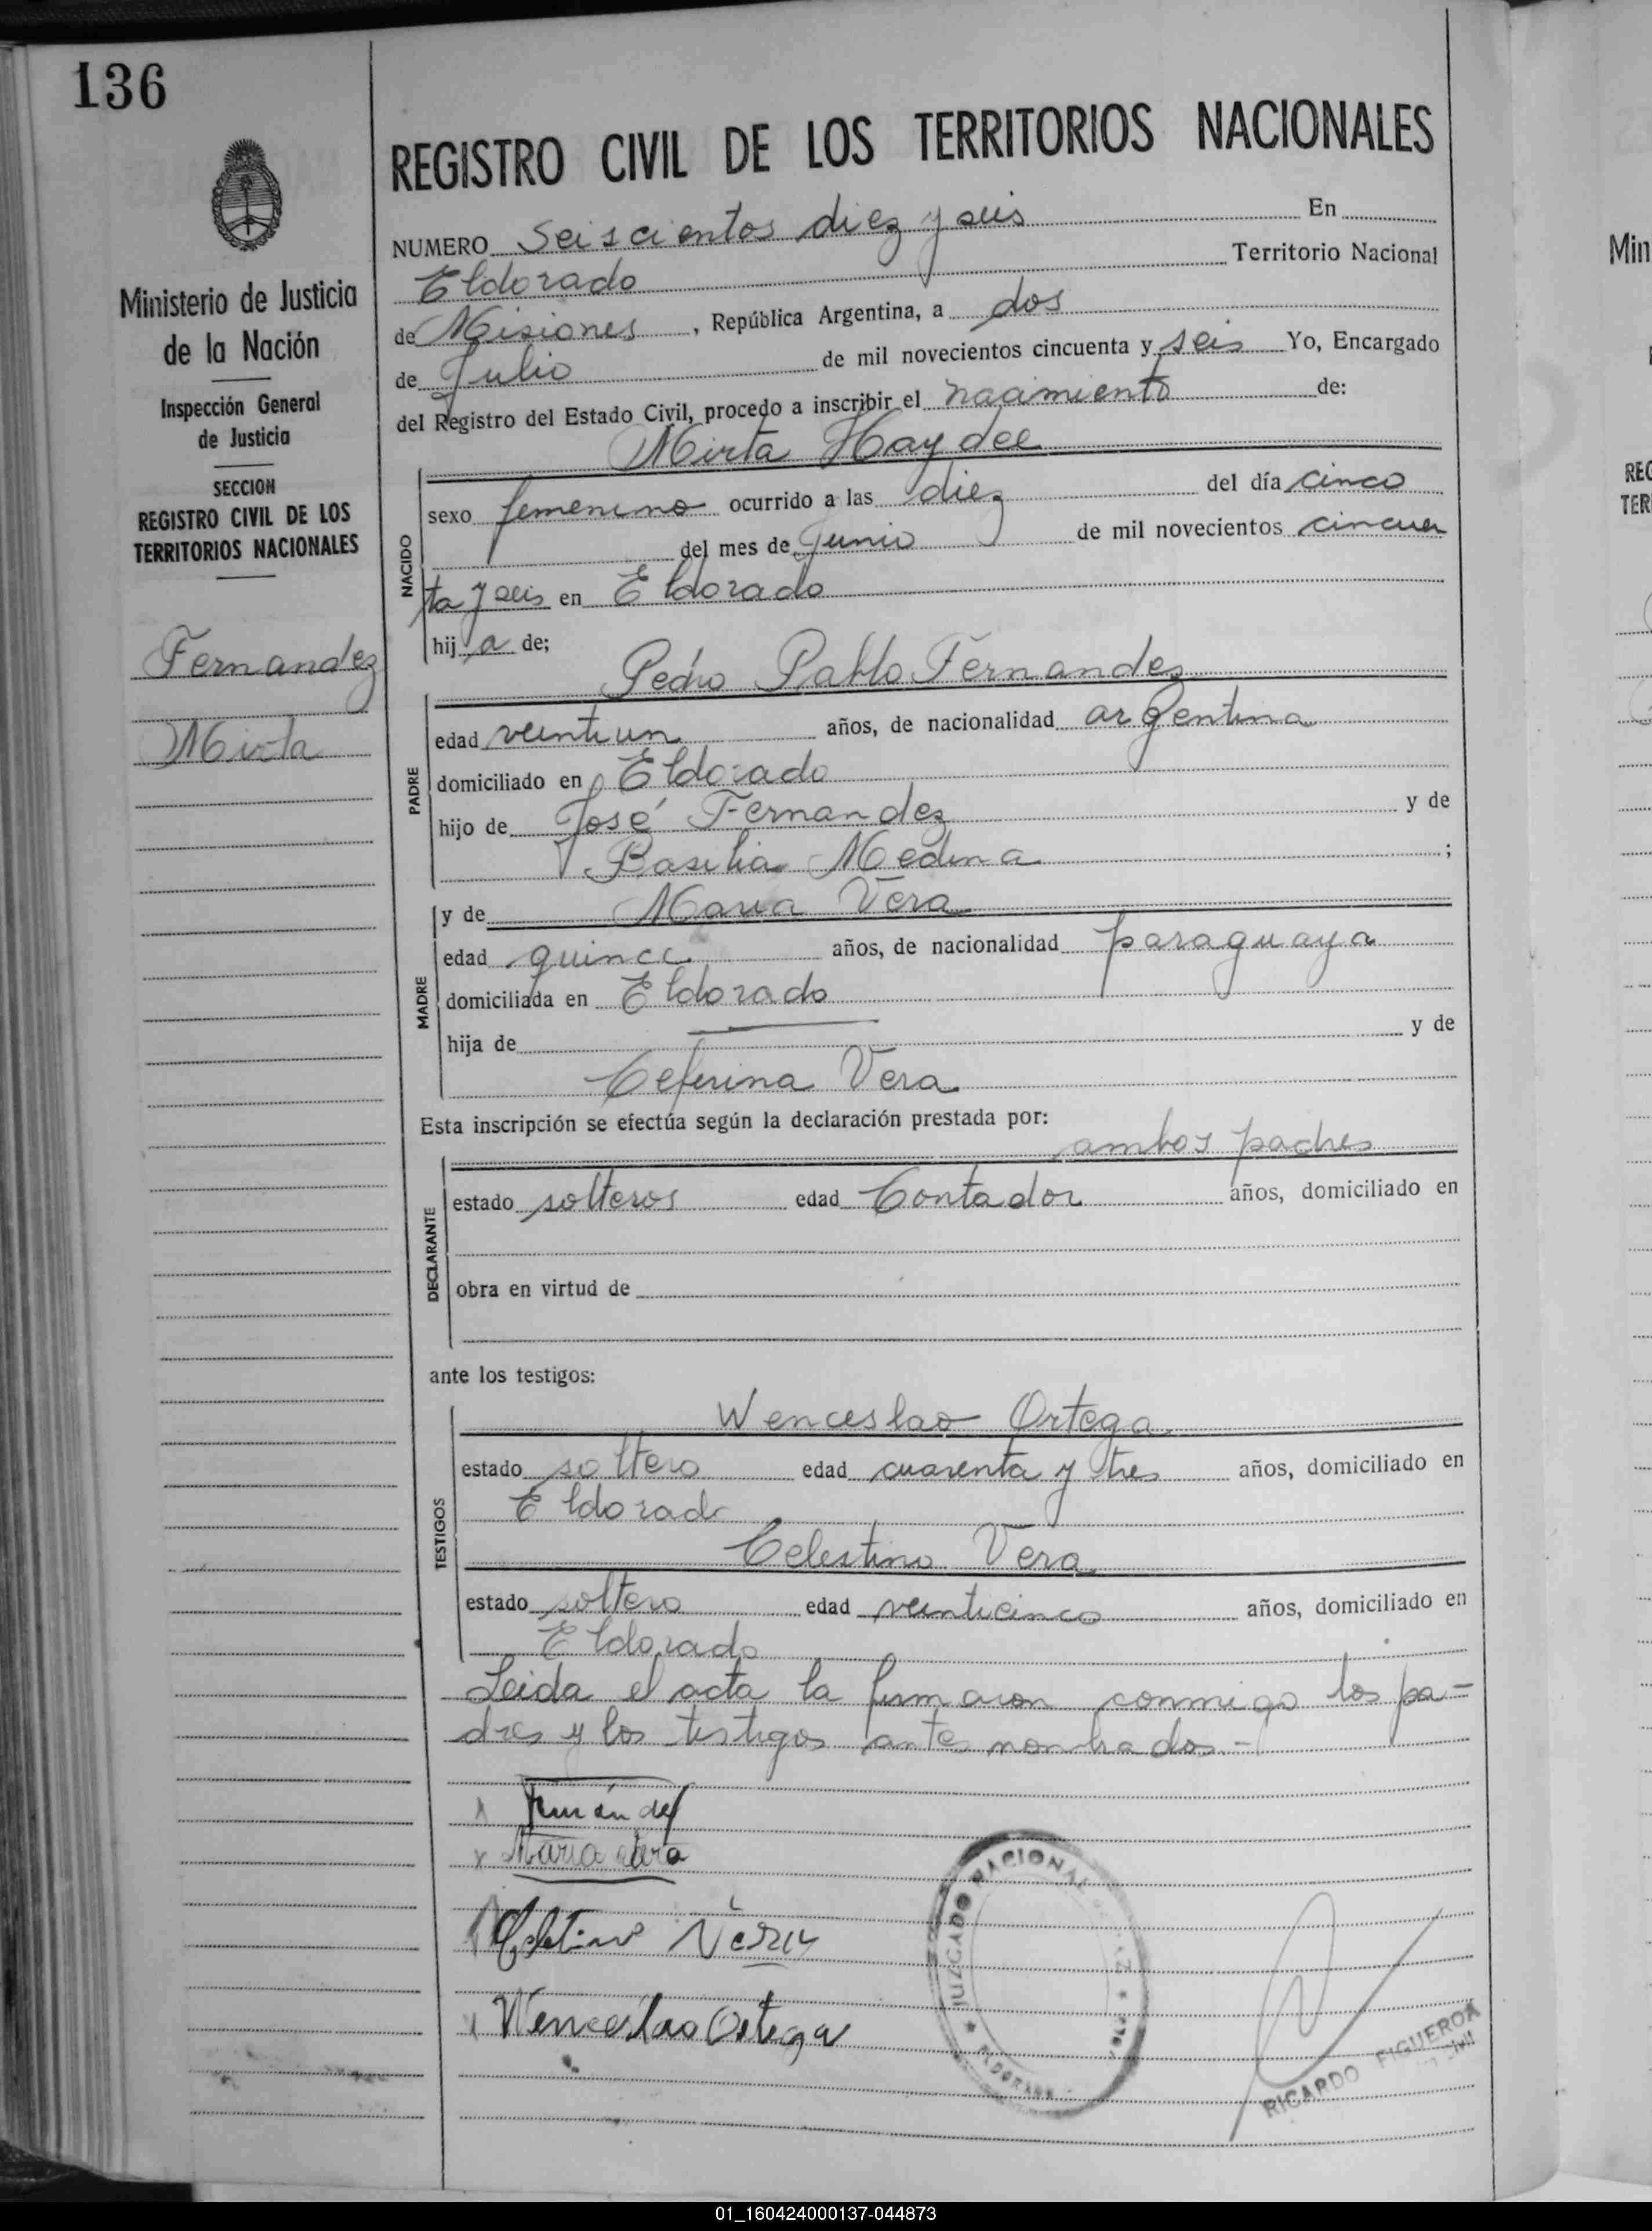 136
Ministerio de Justicia
de la Nación
Inspección General
de Justicia
SECCION
REGISTRO CIVIL DE LOS
TERRITORIOS NACIONALES
Fernandez
Mirta
REGISTRO CIVIL DE LOS TERRITORIOS NACIONALES
NUMERO Seiscientos diez y seis En
Eldorado Territorio Nacional
de Misiones, República Argentina, a dos
de Julio de mil novecientos cincuenta y seis Yo, Encargado
del Registro del Estado Civil, procedo a inscribir el nacimiento de:
Mirta Haydee
NACIDO
sexo femenino ocurrido a las diez del día cinco
del mes de Junio de mil novecientos cincuen
ta y seis en Eldorado
hija de;
Pedro Pablo Fernandez
PADRE
edad veintiun años, de nacionalidad argentina
domiciliado en Eldorado
hijo de José Fernandez y de
Basilia Medina ;
MADRE
y de Maria Vera
edad quince años, de nacionalidad paraguaya
domiciliada en Eldorado
hija de y de
Ceferina Vera
Esta inscripción se efectúa según la declaración prestada por:
ambos padres
DECLARANTE
estado solteros edad Contador años, domiciliado en
obra en virtud de
ante los testigos:
TESTIGOS
Wenceslao Ortega
estado soltero edad cuarenta y tres años, domiciliado en
Eldorado
Celestino Vera
estado soltero edad veinticinco años, domiciliado en
Eldorado
Leida el acta la firmaron conmigo los pa=
dres y los testigos ante nombrados.-
Fernández
Maria Vera
Celestino Vera
Wenceslao Ortega
JUZGADO NACIONAL
ELDORADO
RICARDO FIGUEROA
Min
REG
TER
01_160424000137-044873